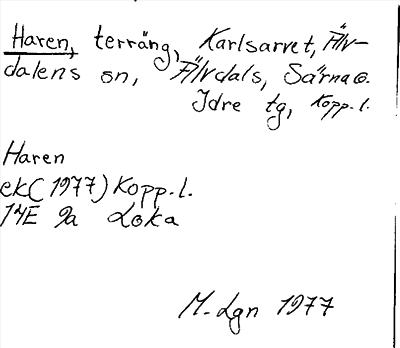 Haren, terräng, Karlsarvet, Älv-
dalens sn, Älvdals, Särna o.
Idre tg, Kopp. l.
Haren
ek (1977) Kopp. l.
14E 2a Loka
M. Lgn 1977